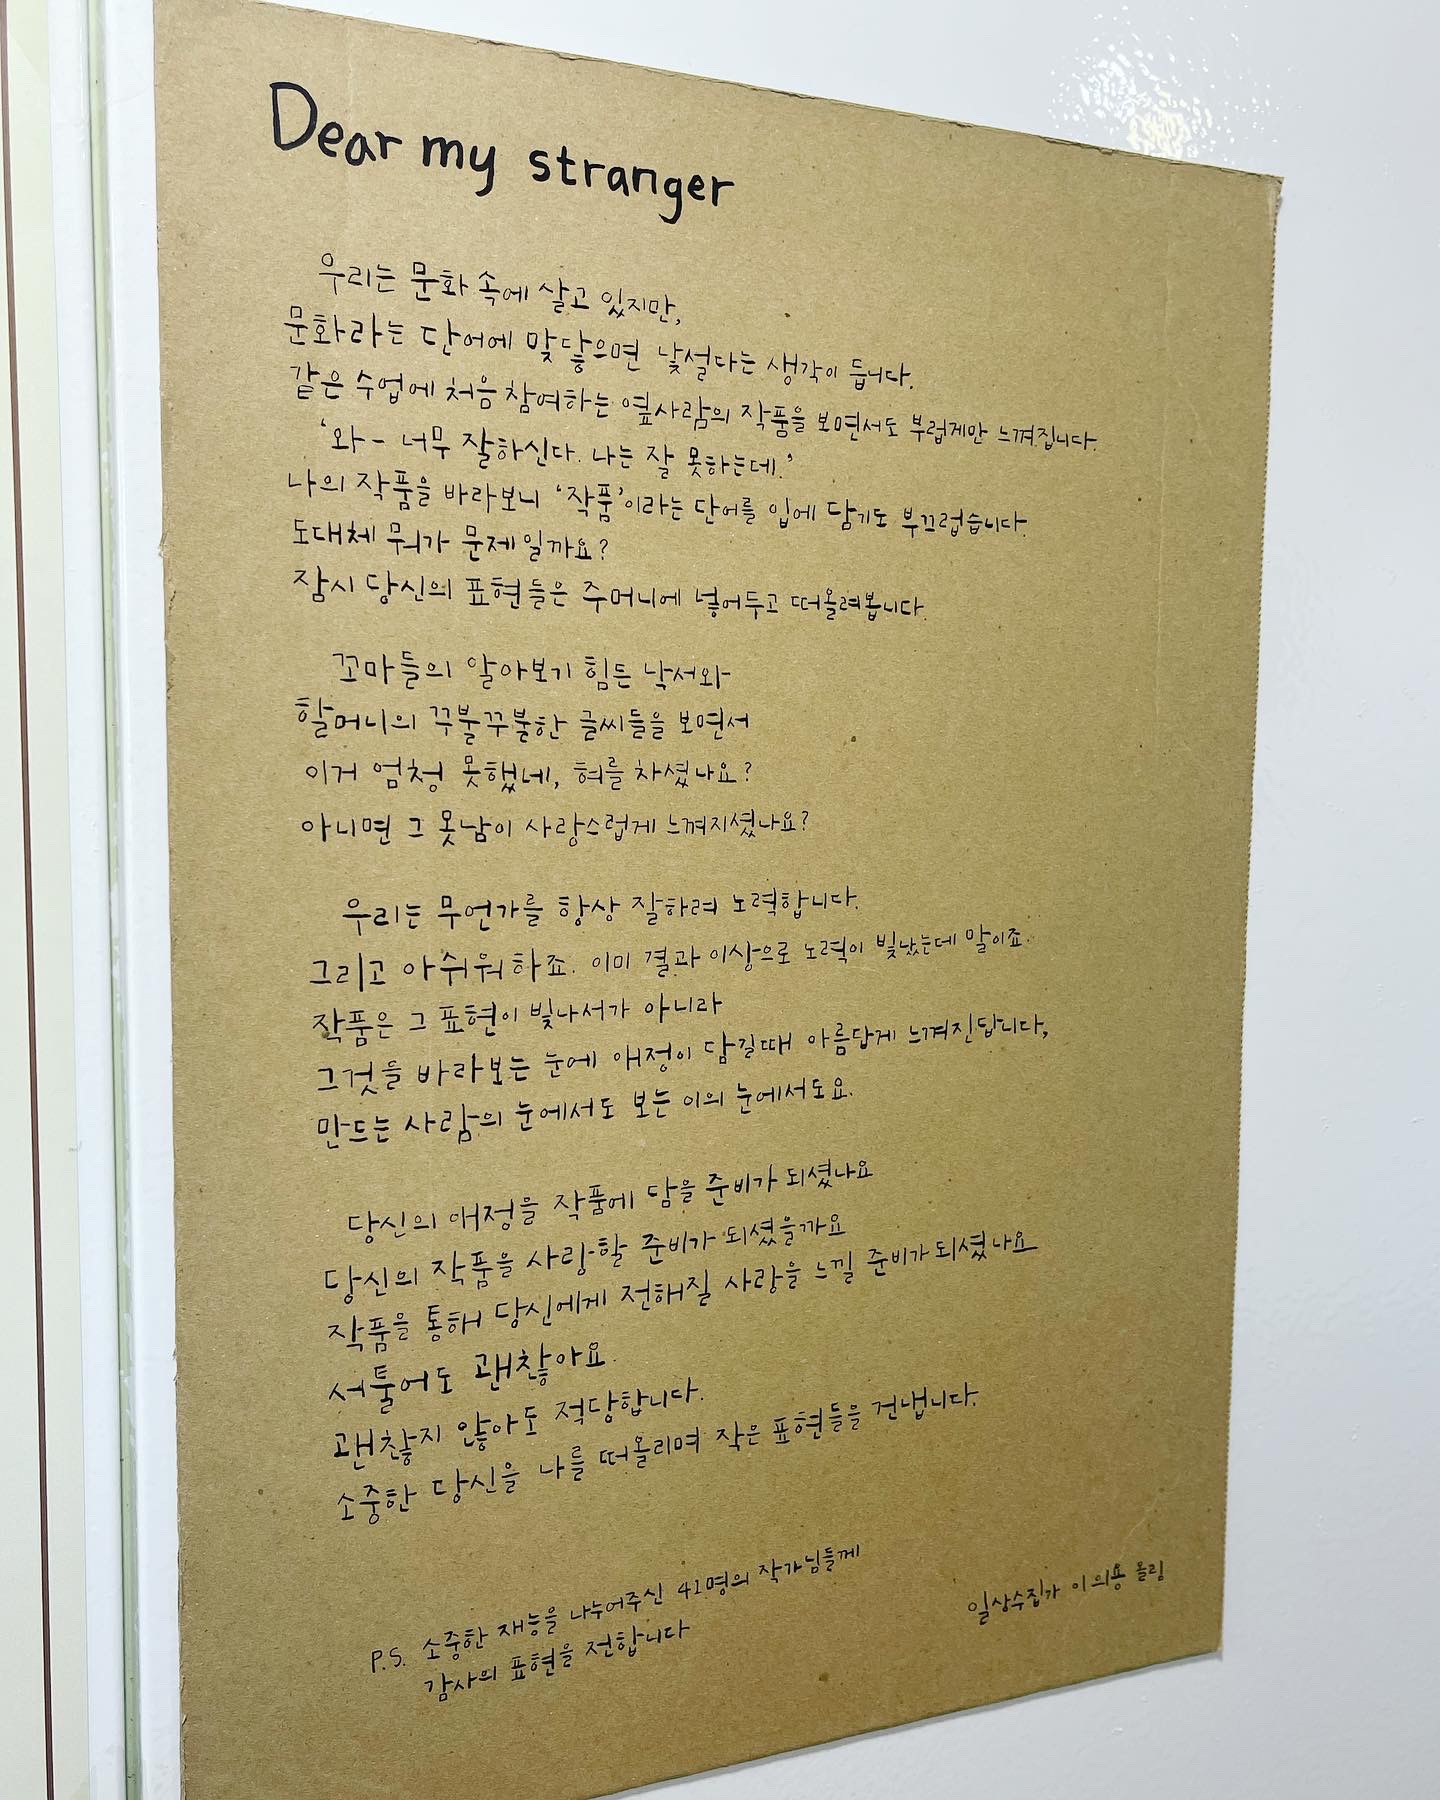 Dear my stranger
우리는 문화 속에 살고 있지만,
문화라는 단어에 맞닿으면 낯설다는 생각이 듭니다.
같은 수업에 처음 참여하는 옆사람의 작품을 보면서도 부럽게만 느껴집니다.
'와- 너무 잘하신다. 나는 잘 못하는데.'
나의 작품을 바라보니 '작품'이라는 단어를 입에 담기도 부끄럽습니다.
도대체 뭐가 문제일까요?
잠시 당신의 표현들은 주머니에 넣어두고 떠올려봅니다.
꼬마들의 알아보기 힘든 낙서와
할머니의 꾸불꾸불한 글씨들을 보면서
이거 엄청 못했네, 혀를 차셨나요?
아니면 그 못남이 사랑스럽게 느껴지셨나요?
우리는 무언가를 항상 잘하려 노력합니다.
그리고 아쉬워하죠. 이미 결과 이상으로 노력이 빛났는데 말이죠.
작품은 그 표현이 빛나서가 아니라
그것을 바라보는 눈에 애정이 담길때 아름답게 느껴진답니다,
만드는 사람의 눈에서도 보는 이의 눈에서도요.
당신의 애정을 작품에 담을 준비가 되셨나요
당신의 작품을 사랑할 준비가 되셨을까요
작품을 통해 당신에게 전해질 사랑을 느낄 준비가 되셨나요
서툴어도 괜찮아요.
괜찮지 않아도 적당합니다.
소중한 당신을 나를 떠올리며 작은 표현들을 건냅니다.
P.S. 소중한 재능을 나누어주신 41명의 작가님들께
감사의 표현을 전합니다
일상수집가 이의용 올림